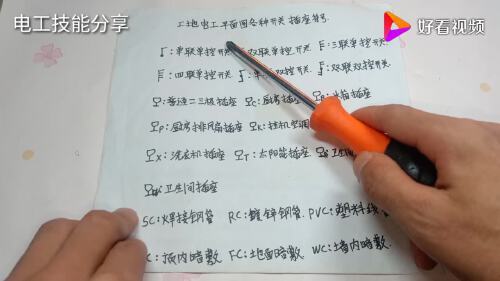 电工技能分享
好看视频
工地电工平面图各种开关插座符号
单联单控开关 双联单控开关 E:三联单控开关
四联单控开关 双联双控开关
普通二三极插座 C:厨房插座 R:冰箱插座
P:厨房排风扇插座 K:挂机空调
X:洗衣机插座 T:太阳能插座 卫生间
卫生间插座
SC:焊接钢管 RC:镀锌钢管 PVC:塑料线管
C:顶内暗敷 FC:地面暗敷 WC:墙内暗敷